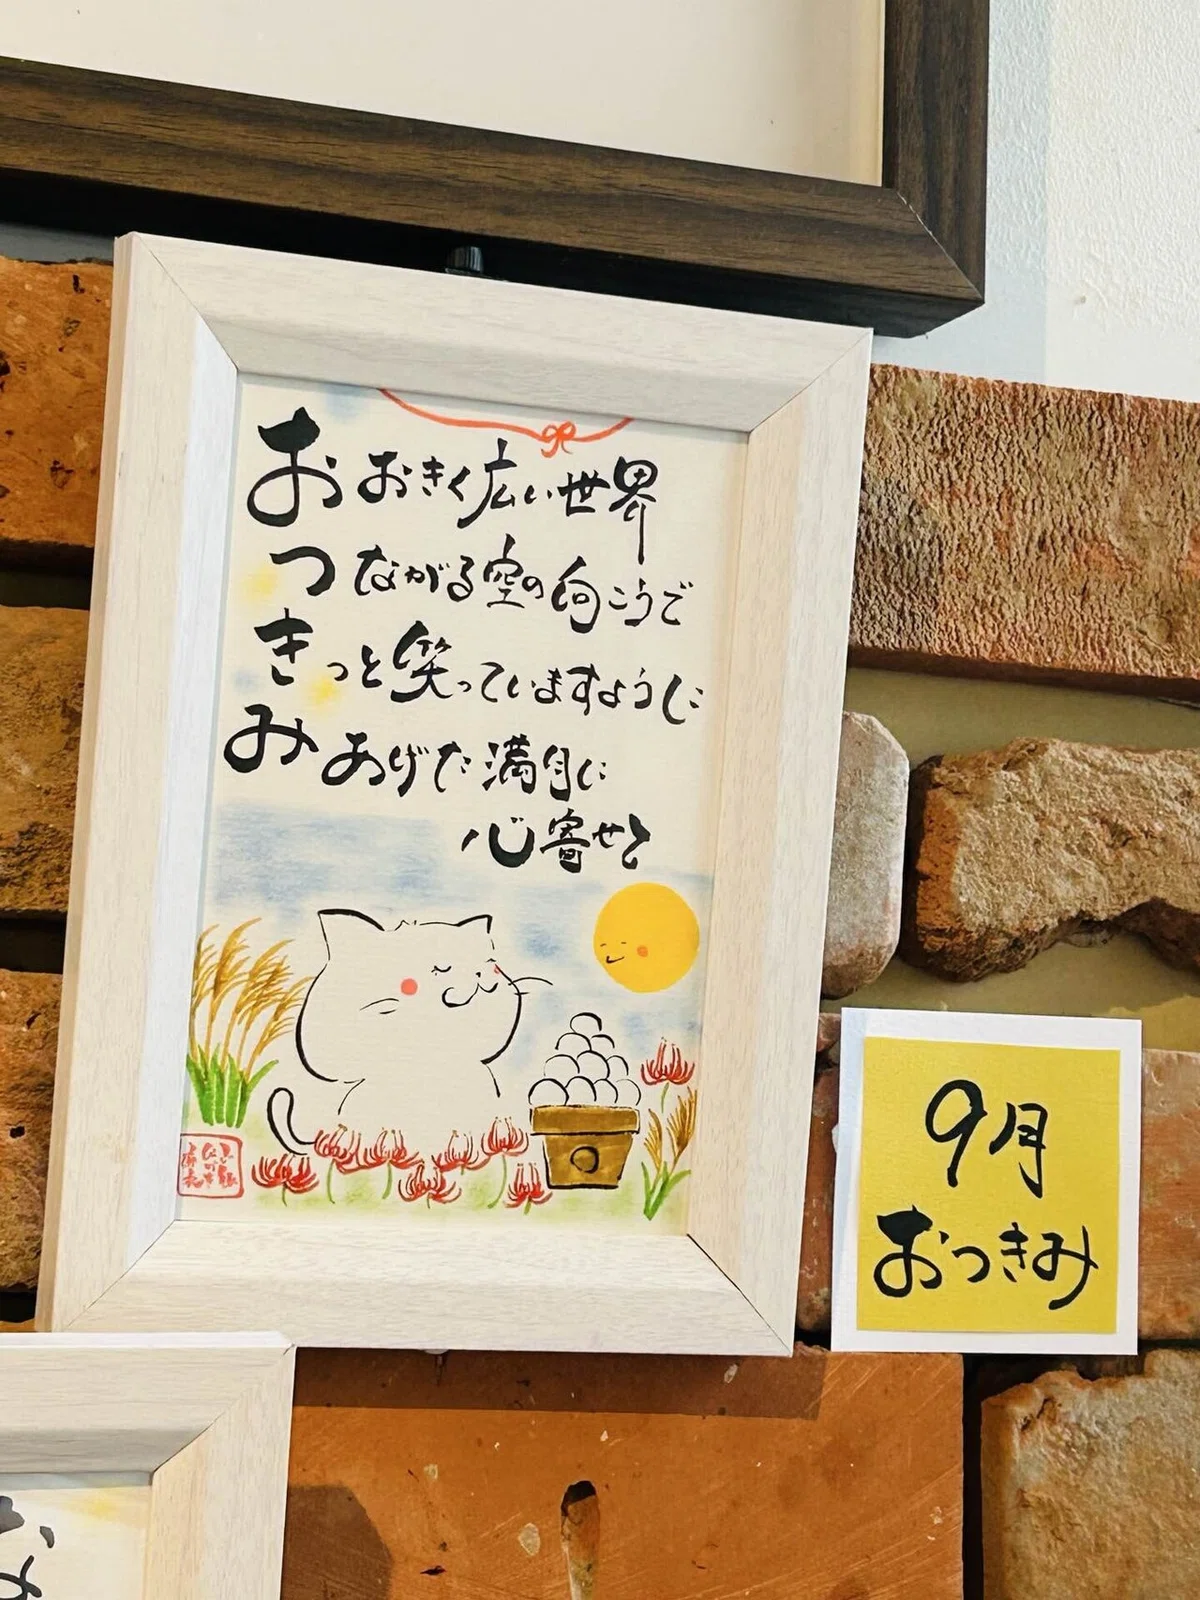 おおきく広い世界
つながる空の向こうで
きっと笑っていますように
みあげた満月に
心寄せて
9月
おつきみ
な